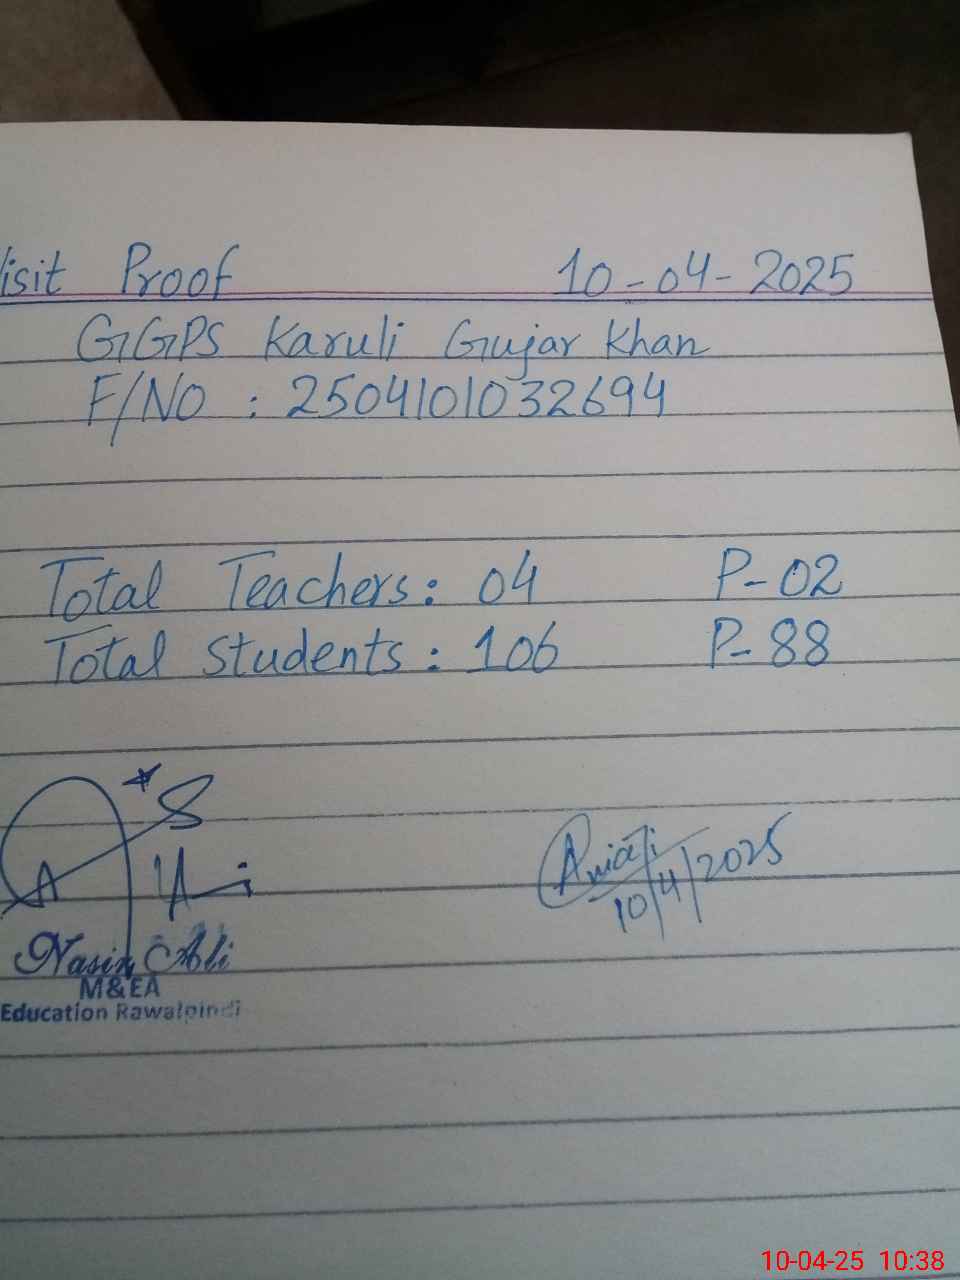 Visit Proof 10-04-2025
GGPS Karuli Gujar Khan
F/NO : 2504101032694
Total Teachers: 04 P-02
Total Students: 106 P-88
10/4/2025
Nasir Ali
M&EA
Education Rawalpindi
10-04-25 10:38